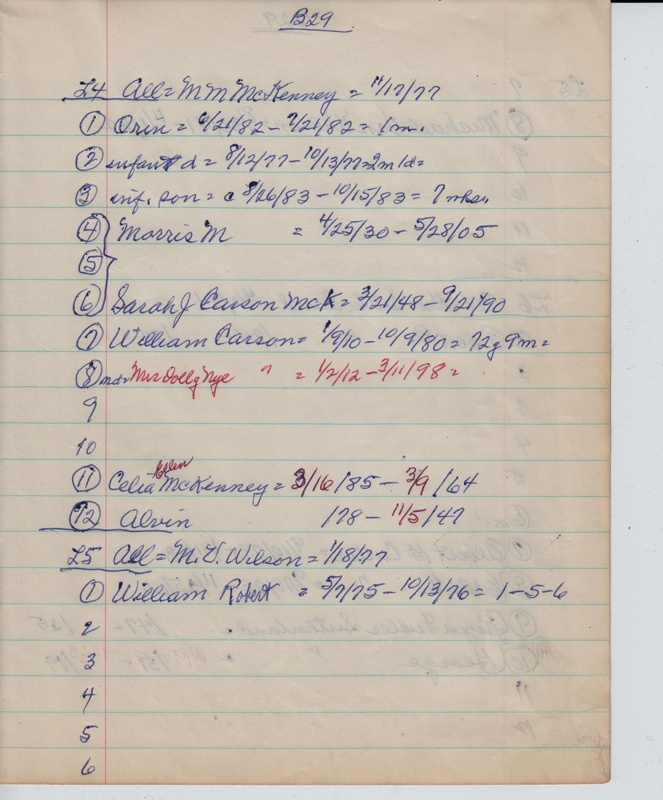 B29
L4 All = M M McKenney = 11/17/77
① Orin = 6/21/82 - 7/21/82 = 1 m.
② infant d = 8/12/77 - 10/13/77 = 2m 1d =
③ inf. son = c 8/26/83 - 10/15/83 = 7 wks.
④ Morris M = 4/25/30 - 5/28/05
⑤
⑥ Sarah J Carson McK = 3/21/48 - 9/21/90
⑦ William Carson = 1/9/10 - 10/9/80 = 72y 9m =
⑧ Mrs Dolly Nye " = 1/2/12 - 3/11/98 =
9
10
⑪ Celia Ellen McKenney = 3/16/85 - 3/9/64
⑫ Alvin /78 - 11/5/47
L5 All = M. V. Wilson = 1/18/77
① William Robert = 5/7/75 - 10/13/76 = 1-5-6
2
3
4
5
6